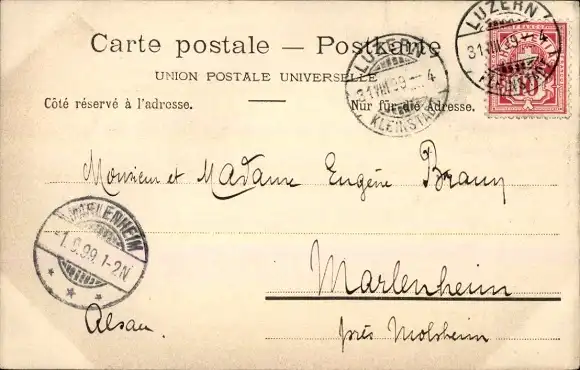 Carte postale — Postkarte
UNION POSTALE UNIVERSELLE
Côté réservé à l'adresse. Nur für die Adresse.
LUZERN
31.VIII.99 — 4
KLEINSTADT
LUZERN
31.VIII.99
10
Monsieur et Madame Eugène Braun
MARLENHEIM
1.9.99. 1-2N
Marlenheim
près Molsheim
Alsace.